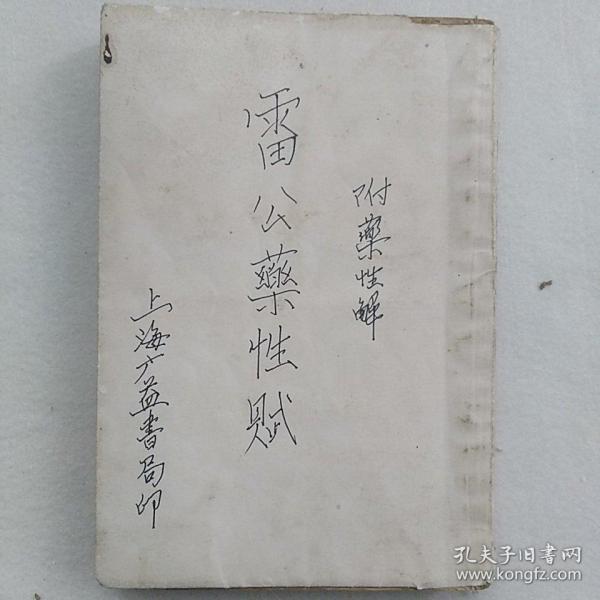 附藥性解
雷公藥性賦
上海广益書局印
孔夫子旧书网
www.kongfz.com